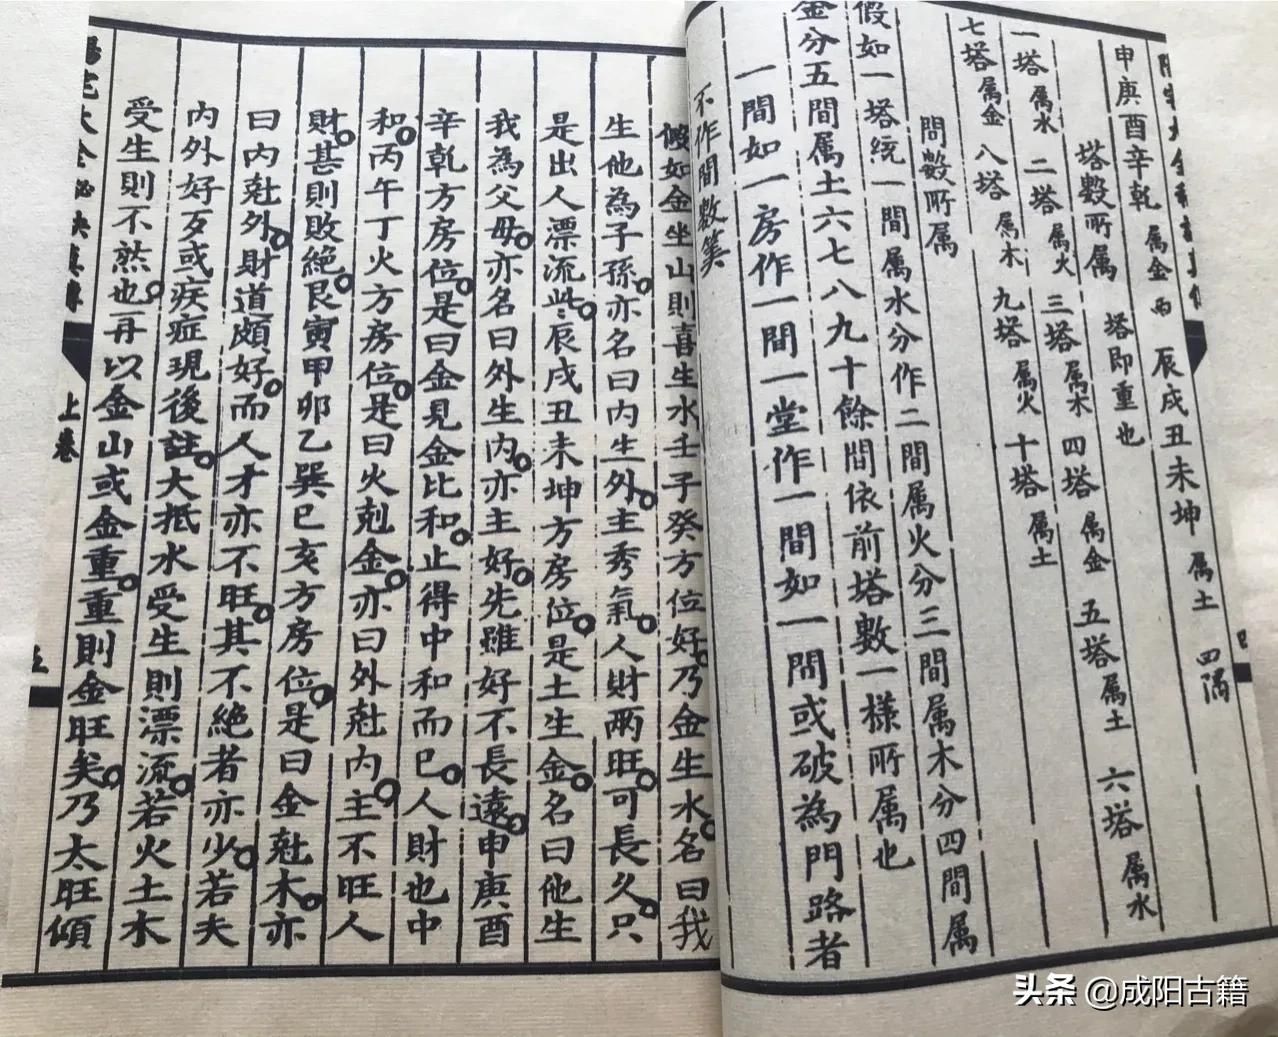 申庚酉辛乾 属金 西 辰戌丑未坤 属土 四隅
塔數所属 塔即重也
一塔属水 二塔属火 三塔属木 四塔属金 五塔属土 六塔属水
七塔属金 八塔属木 九塔属火 十塔属土
間數所属
假如一塔統一間属水分作二間属火分三間属木分四間属
金分五間属土六七八九十餘間依前塔數一樣所属也
一間如一房作一間一堂作一間如一間或破為門路者
不作間數筭
假如金坐山則喜生水壬子癸方位好。乃金生水。名曰我
生他為子孫。亦名曰内生外。主秀氣。人財兩旺。可長久。只
是出人漂流些。辰戌丑未坤方房位。是土生金。名曰他生
我為父母。亦名曰外生内。亦主好。先雖好不長遠。申庚酉
辛乾方房位。是曰金見金比和。止得中和而已。人財也中
和。丙午丁火方房位。是曰火剋金。亦曰外尅内。主不旺人
財。甚則敗絕。艮寅甲卯乙巽巳亥方房位。是曰金尅木。亦
曰内尅外。財道頗好。而人才亦不旺。其不絕者亦少。若夫
内外好歹或疾症現後註。大抵水受生則漂流。若火土木
受生則不然也。再以金山或金重。重則金旺矣。乃太旺傾
陽宅大全秘訣真傳
上卷
五
头条 @成阳古籍